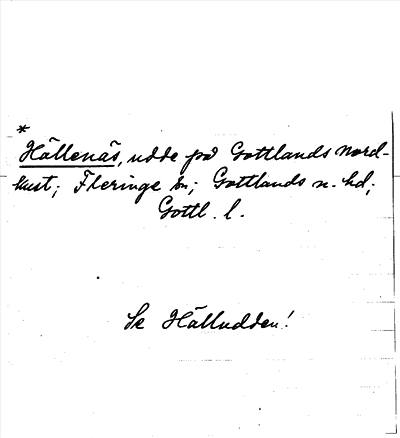 *
Hällenäs, udde på Gottlands nord-
kust; Fleringe sn; Gottlands n. hd;
Gottl. l.
Se Hälludden!